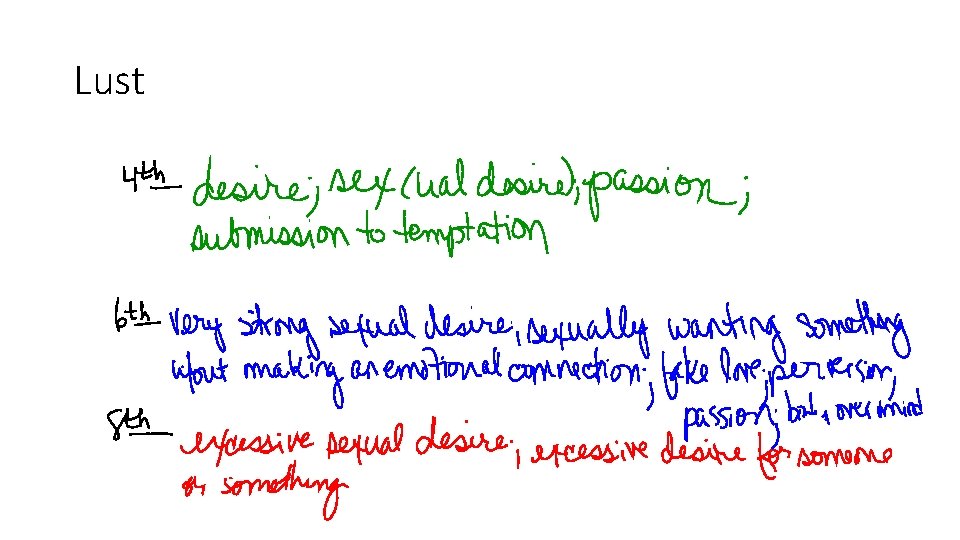 Lust
4th desire; sex(ual desire); passion;
submission to temptation
6th very strong sexual desire; sexually wanting something
w/out making an emotional connection; fake love; perversion;
passion; body over mind
8th excessive sexual desire; excessive desire for someone
or something